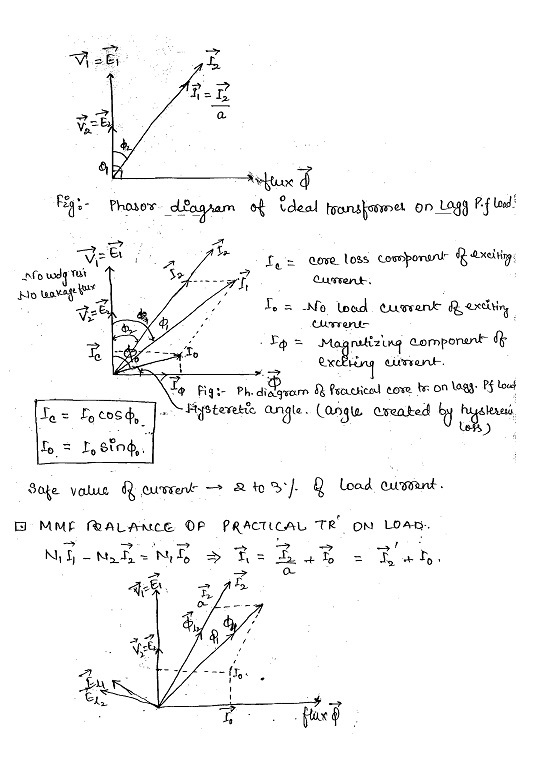 V₁ = E₁
I₂
I₁ = I₂/a
V₂ = E₂
φ₂
flux Φ
Fig:- Phasor diagram of ideal transformer on Lagg P.f load.
V₁ = E₁
I₂
No wdg res
No leakage flux
I₂
I₁
V₂ = E₂
φ₂
φ₁
I_c
I₀
I_φ
Φ
I_c = core loss component of exciting
current.
I₀ = No load current of exciting
current
I_φ = Magnetizing component of
exciting current.
Fig:- Ph. diagram of Practical core tr. on lagg. Pf load
Hysteretic angle. (angle created by hysteresis
loss)
I_c = I₀ cosφ₀.
I₀ = I₀ sinφ₀.
Safe value of current → 2 to 3 % of load current.
MMF BALANCE OF PRACTICAL TR ON LOAD.
N₁I₁ - N₂I₂ = N₁I₀ ⇒ I₁ = I₂/a + I₀ = I₂' + I₀.
V₁ = E₁
I₂
I₂/a
φ_l2
φ_l1
V₂ = E₂
I₀
E_l1
E_l2
I₀
flux Φ